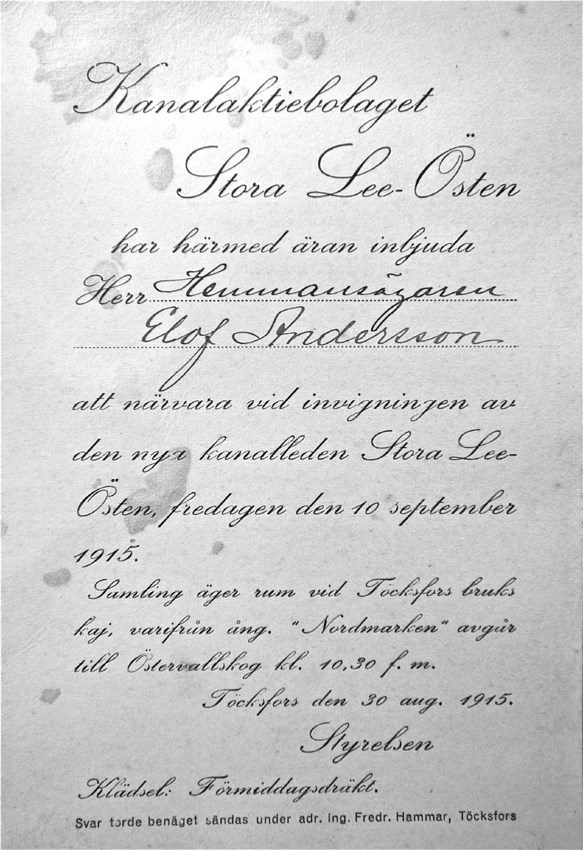 Kanalaktiebolaget
Stora Lee-Östen
har härmed äran inbjuda
Herr Hemmansägaren
Elof Andersson
att närvara vid invigningen av
den nya kanalleden Stora Lee-
Östen, fredagen den 10 september
1915.
Samling äger rum vid Töcksfors bruks
kaj, varifrån ång. "Nordmarken" avgår
till Östervallskog kl. 10,30 f. m.
Töcksfors den 30 aug. 1915.
Styrelsen
Klädsel: Förmiddagsdräkt.
Svar torde benäget sändas under adr. ing. Fredr. Hammar, Töcksfors